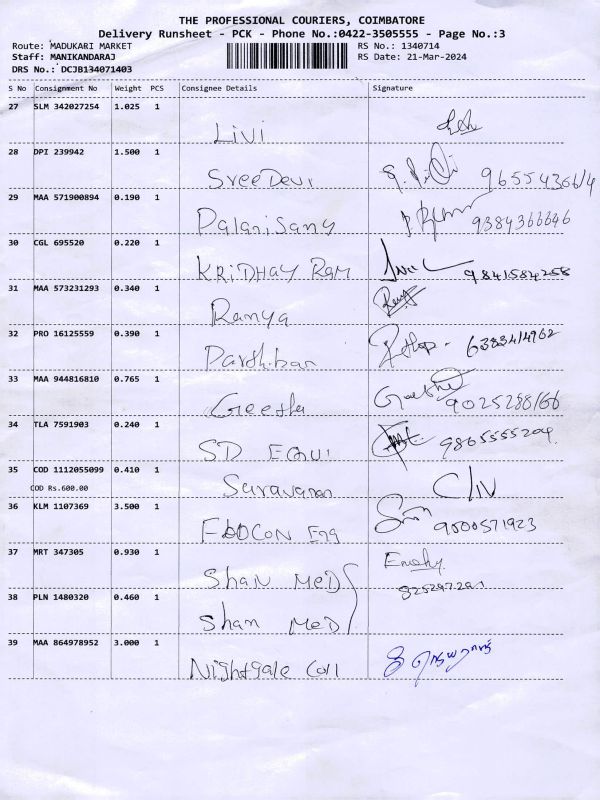 THE PROFESSIONAL COURIERS, COIMBATORE
Delivery Runsheet - PCK - Phone No.:0422-3505555 - Page No.:3
Route: MADUKARI MARKET RS No.: 1340714
Staff: MANIKANDARAJ RS Date: 21-Mar-2024
DRS No.: DCJB134071403
S No Consignment No Weight PCS Consignee Details Signature
27 SLM 342027254 1.025 1
Livi
28 DPI 239942 1.500 1
Sree Devi
29 MAA 571900894 0.190 1
Palanisamy 9384366646
30 CGL 695520 0.220 1
KRIDHAY RAM 9841584258
31 MAA 573231293 0.340 1
Ramya
32 PRO 16125559 0.390 1
Parthiban 6383414962
33 MAA 944816810 0.765 1
Geetha 9025288166
34 TLA 7591903 0.240 1
SD EQUI 9865555204
35 COD 1112055099 0.410 1
COD Rs.600.00
Saravanan
36 KLM 1107369 3.500 1
Eng 9500571923
37 MRT 347305 0.930 1
Shan MeD
38 PLN 1480320 0.460 1
Shan MeD
39 MAA 864978952 3.000 1
Nightgale Coll